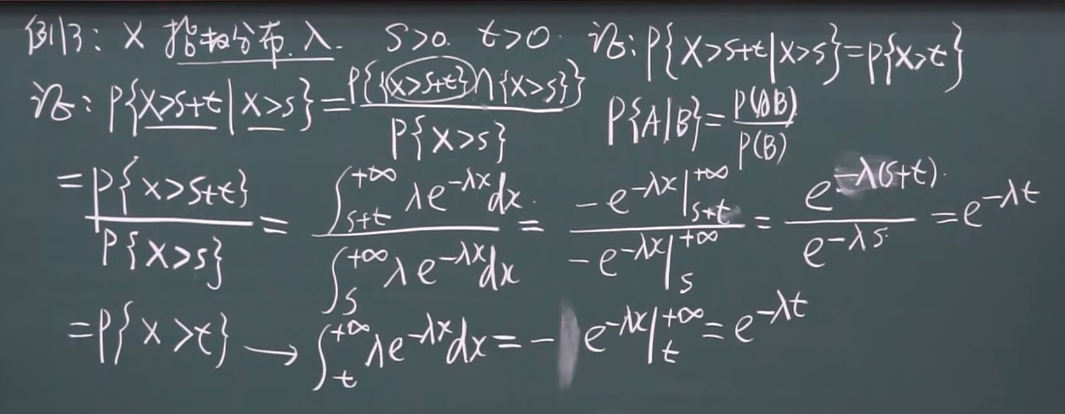 例3: X 指数分布 λ. S>0. t>0. 证: P{X>S+t|X>S}=P{X>t}
证: P{X>S+t|X>S}=P{{X>S+t}∩{X>S}}/P{X>S} P{A|B}=P(AB)/P(B)
=P{X>S+t}/P{X>S}=∫_{S+t}^{+∞} λe^{-λx}dx/∫_{S}^{+∞} λe^{-λx}dx=-e^{-λx}|_{S+t}^{+∞}/-e^{-λx}|_{S}^{+∞}=e^{-λ(S+t)}/e^{-λS}=e^{-λt}
=P{X>t}→∫_{t}^{+∞} λe^{-λx}dx=-e^{-λx}|_{t}^{+∞}=e^{-λt}